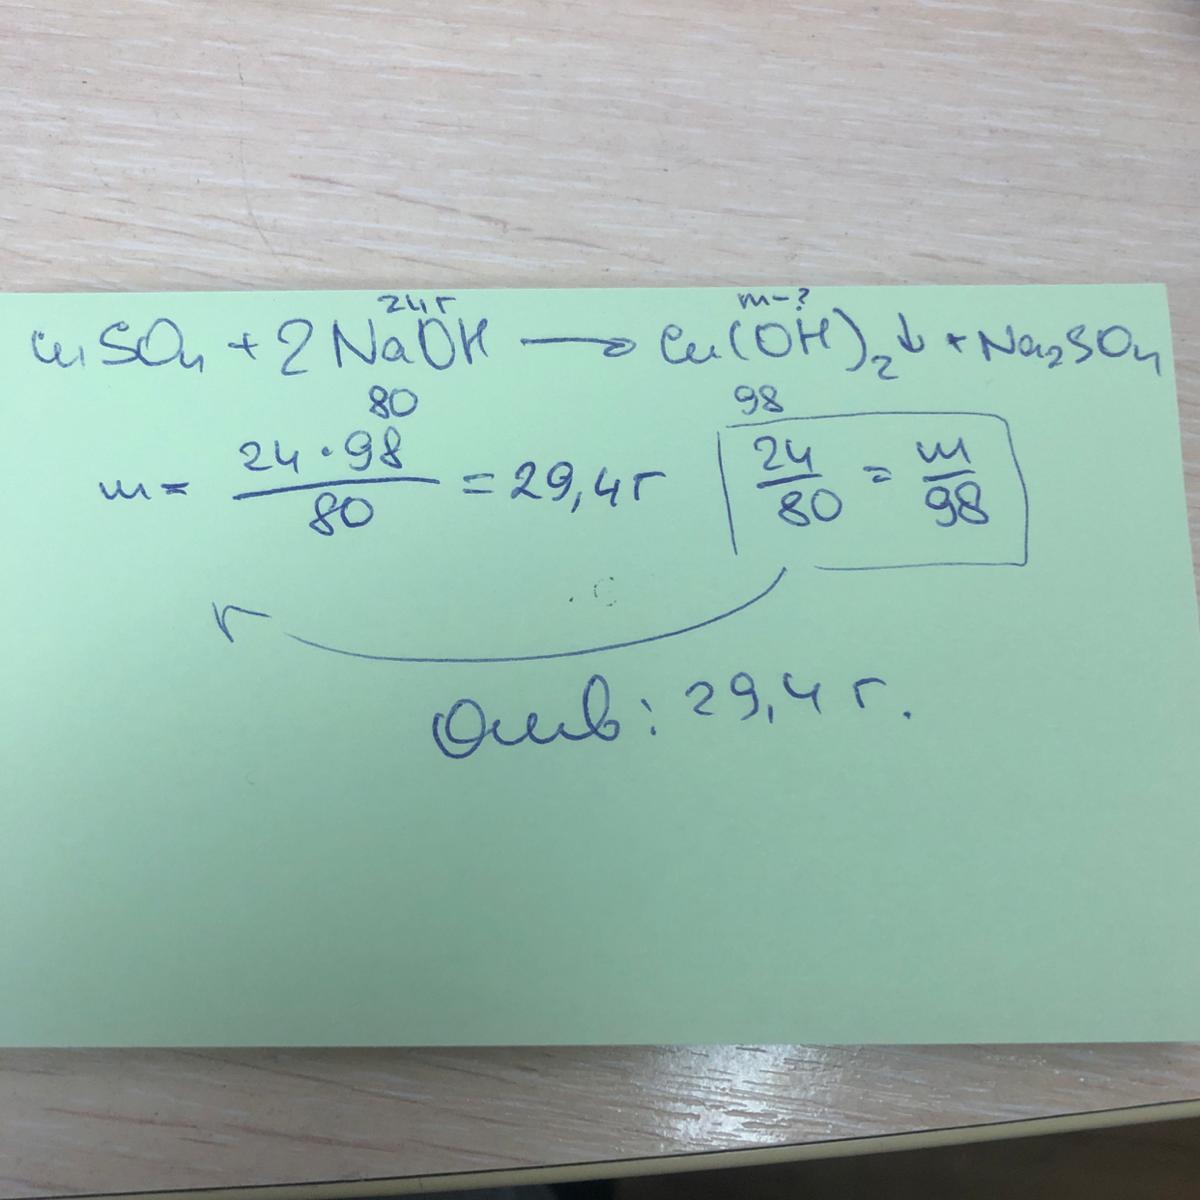 24г m-?
CuSO₄ + 2NaOH ⟶ Cu(OH)₂↓ + Na₂SO₄
80 98
m = 24·98/80 = 29,4г 24/80 = m/98
г
Отв: 29,4 г.